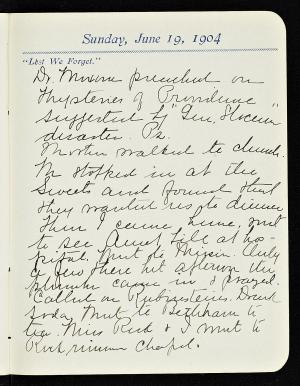 Sunday, June 19, 1904
"Lest We Forget."
Dr. preached on
Mysteries of Providence
suggested by "Gen. Slocum"
disaster. Pa.
walked to church.
stopped in at the
Sweets and found that
they wanted us to dinner
Then I came home, went
to see Aunt at hos-
pital. Went to Only
a few there but afterward the
came in & played.
Called on Rubinsteins. Drank
soda. Went to Bethham to
tea. Miss Rick & I went to
chapel.